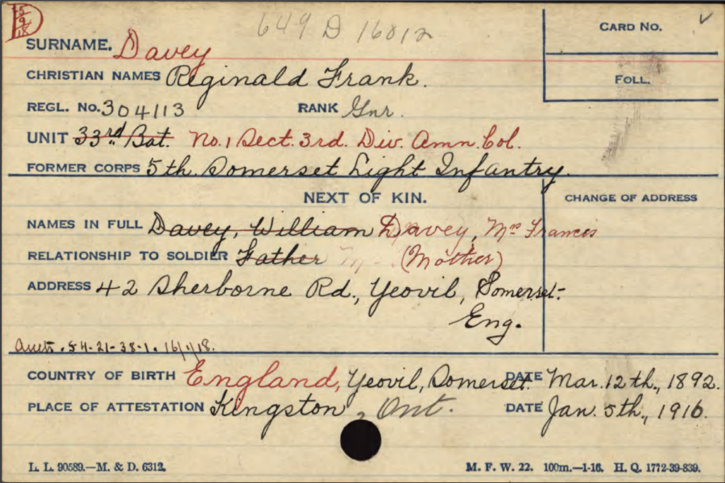 649 D 16012
CARD NO.
SURNAME. Davey
CHRISTIAN NAMES Reginald Frank.
FOLL.
REGL. No. 304113 RANK Gnr.
UNIT 33rd Bat. No. 1 Sect. 3rd. Div. Amn. Col.
FORMER CORPS 5th Somerset Light Infantry.
NEXT OF KIN.
CHANGE OF ADDRESS
NAMES IN FULL Davey, William Davey, Mrs Frances
RELATIONSHIP TO SOLDIER Father (Mother)
ADDRESS 42 Sherborne Rd., Yeovil, Somerset.
Eng.
54-21-38-1. 16/1/18.
COUNTRY OF BIRTH England, Yeovil, Somerset. DATE Mar. 12th., 1892.
PLACE OF ATTESTATION Kingston, Ont. DATE Jan. 5th., 1916.
L. L. 90589.—M. & D. 6312.
M. F. W. 22. 100m.—1-16. H. Q. 1772-39-839.